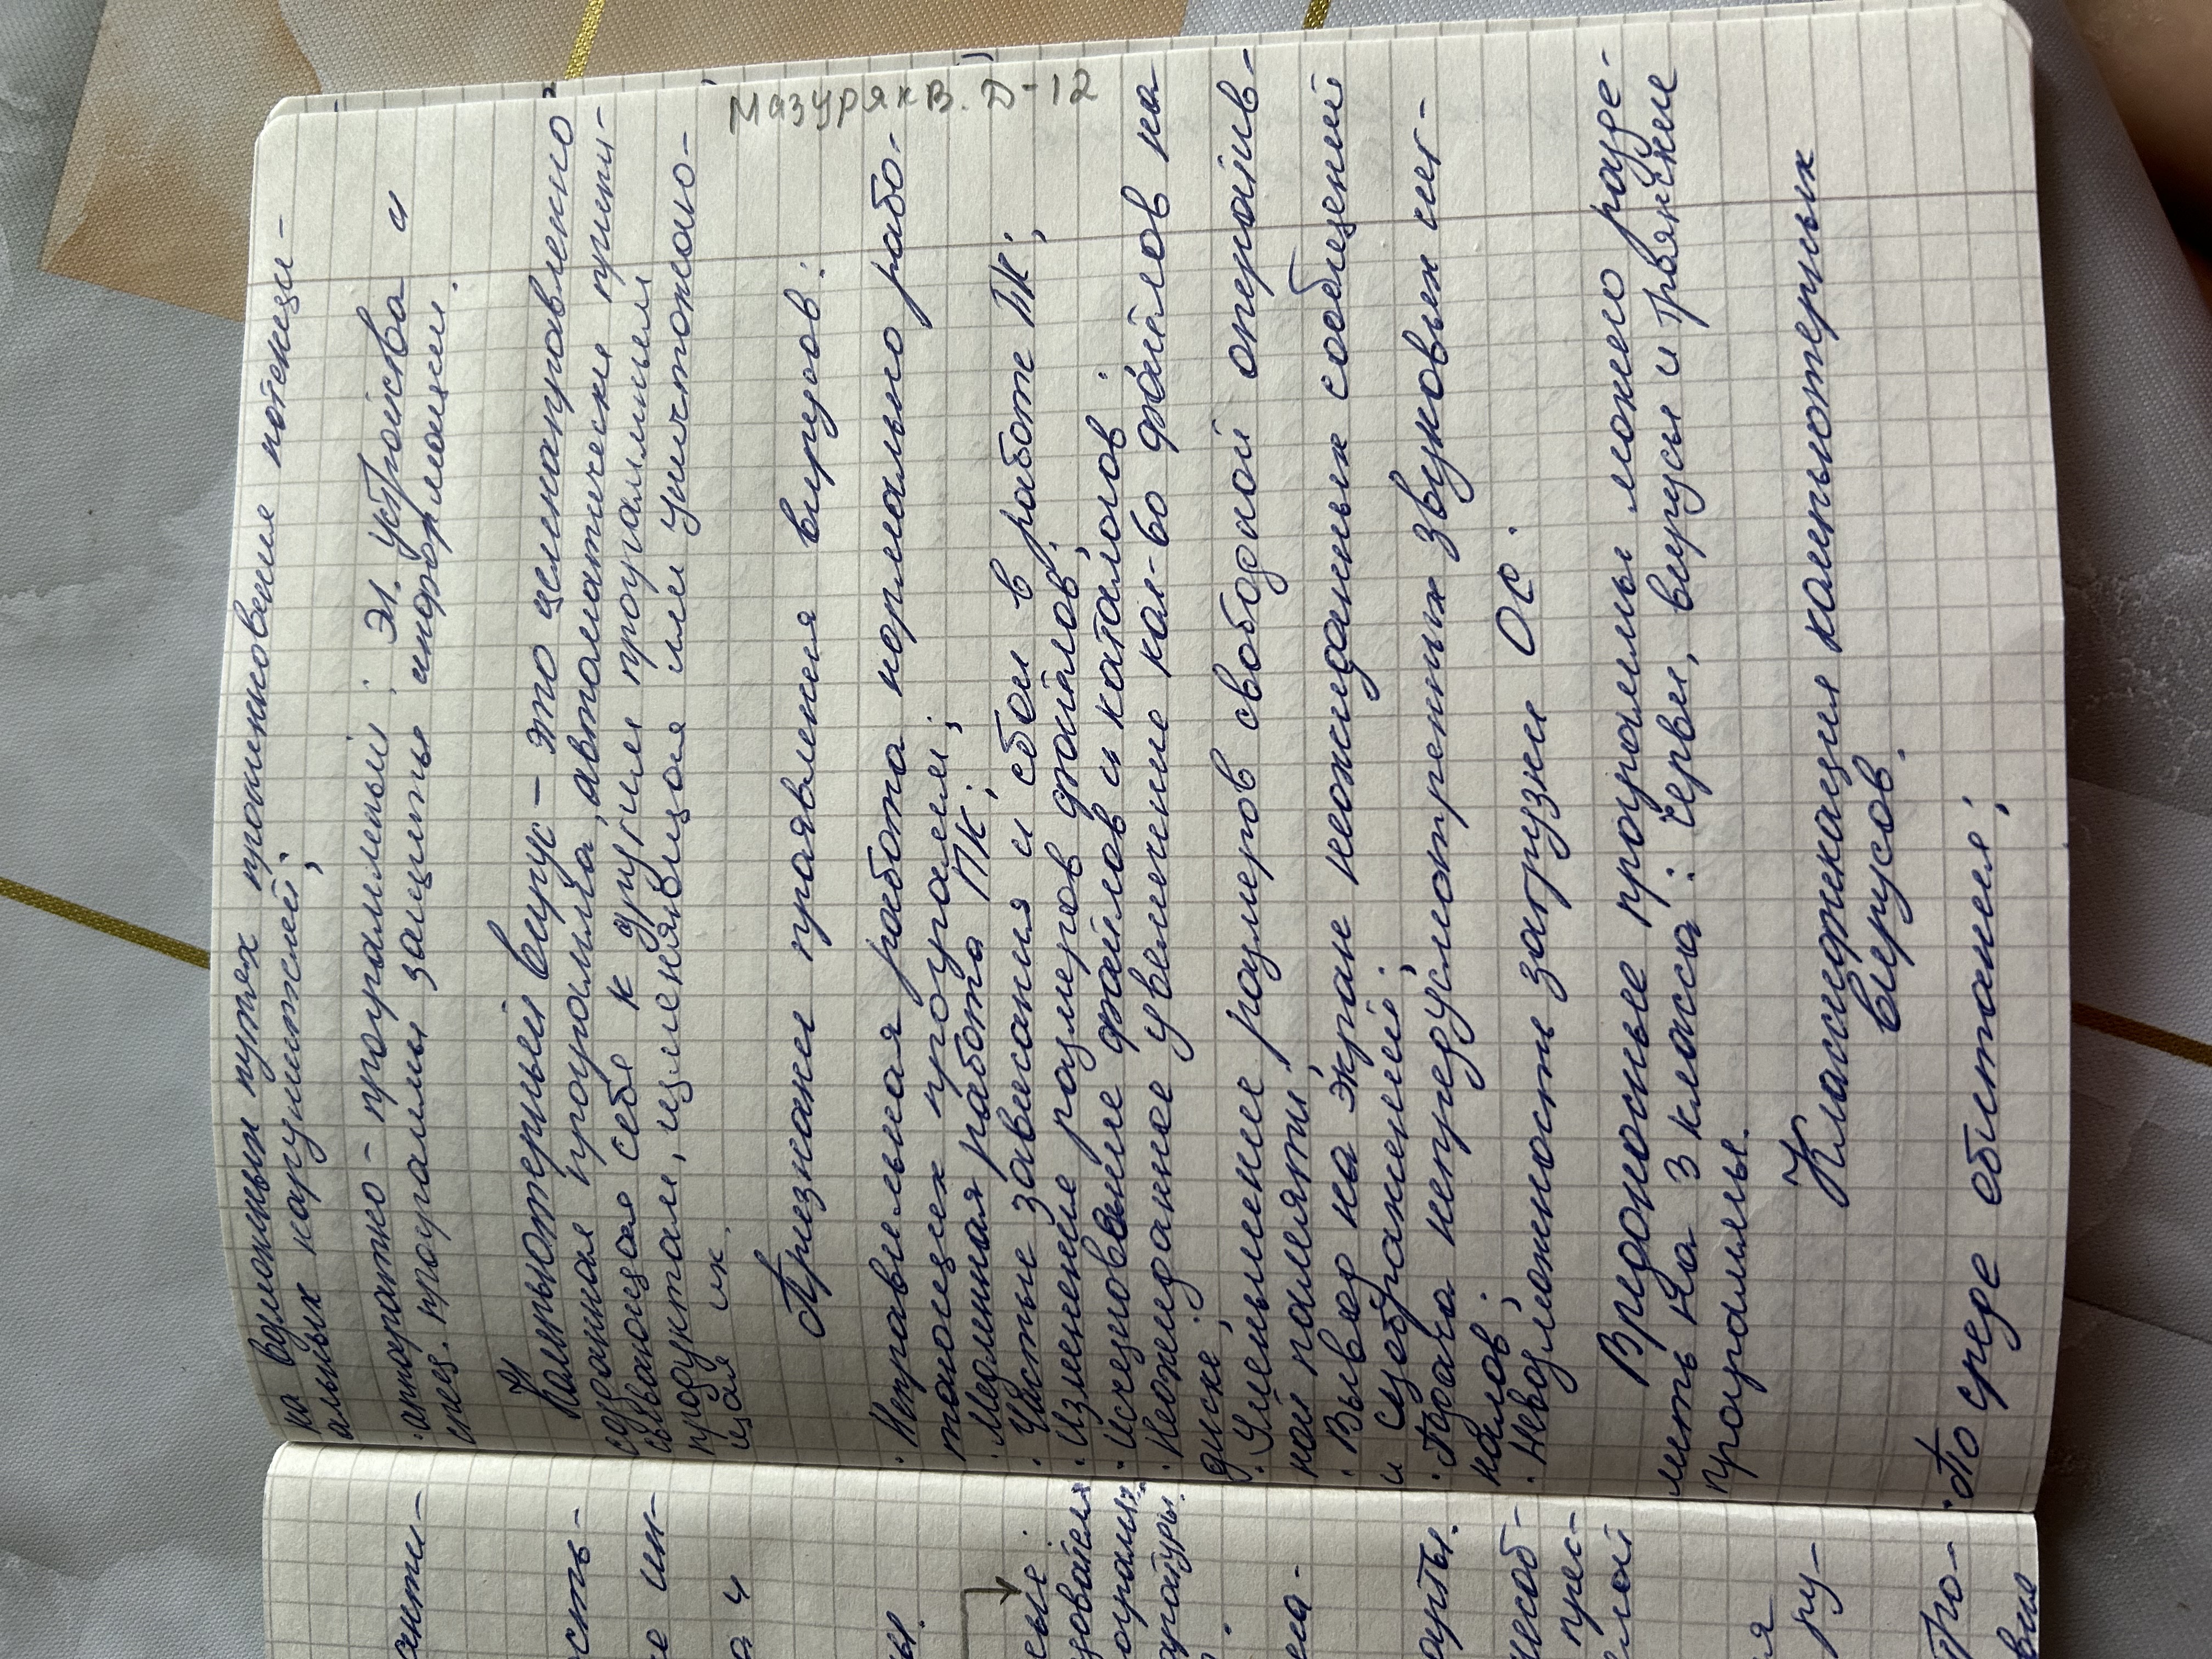 на возможных путях проникновения потенци-
альных нарушителей;
· аппаратно - программный: эл. устройства и
спец. программы защиты информации.
Компьютерный вирус - это целенаправленно
созданная программа, автоматически припи-
сывающая себя к другим программным
продуктам, изменяющая или уничтожаю-
щая их.
Мазуряк В. D-12
Признаки проявления вирусов:
· Неправильная работа нормально рабо-
тающих программ;
· Медленная работа ПК;
· Частые зависания и сбои в работе ПК;
· Изменение размеров файлов;
· Исчезновение файлов и каталогов;
· Неожиданное увеличение кол-во файлов на
диске;
· Уменьшение размеров свободной оператив-
ной памяти;
· Вывод на экран неожиданных сообщений
и изображений;
· Подача непредусмотренных звуковых сиг-
налов;
· Невозможность загрузки ОС.
Вредоносные программы можно разде-
лить на 3 класса: черви, вирусы и троянские
программы.
Классификация компьютерных
вирусов.
· По среде обитания;
анти-
ость-
е ин-
а и
ы.
сные:
зователя
ограмм,
аратуры.
на-
арты.
несоб-
прес-
елой
я
ру-
Про-
вые